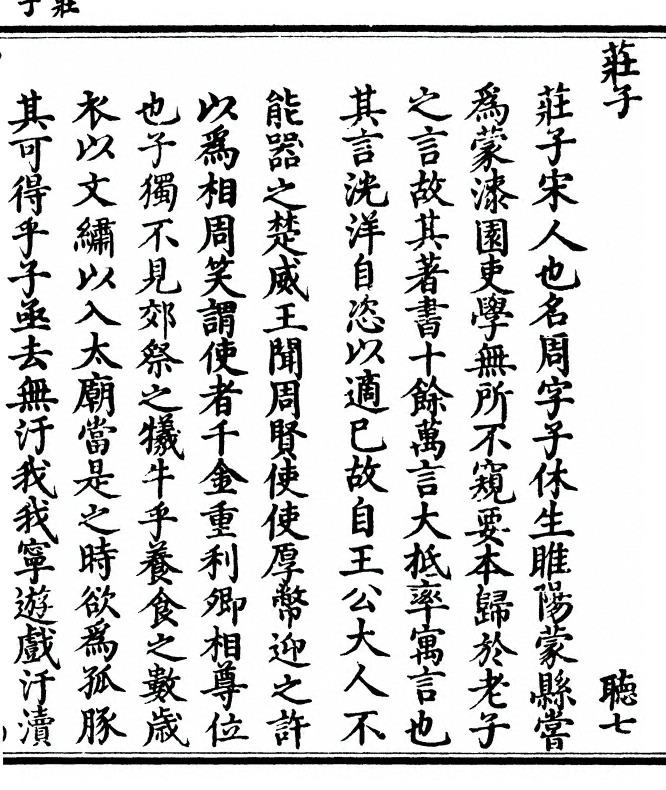 莊子
莊子 聴七
莊子宋人也名周字子休生睢陽蒙縣嘗
爲蒙漆園吏學無所不窺要本歸於老子
之言故其著書十餘萬言大抵率寓言也
其言洸洋自恣以適已故自王公大人不
能器之楚威王聞周賢使使厚幣迎之許
以爲相周笑謂使者千金重利卿相尊位
也子獨不見郊祭之犧牛乎養食之數歲
衣以文繡以入太廟當是之時欲爲孤豚
其可得乎子亟去無汙我我寧遊戲汙瀆